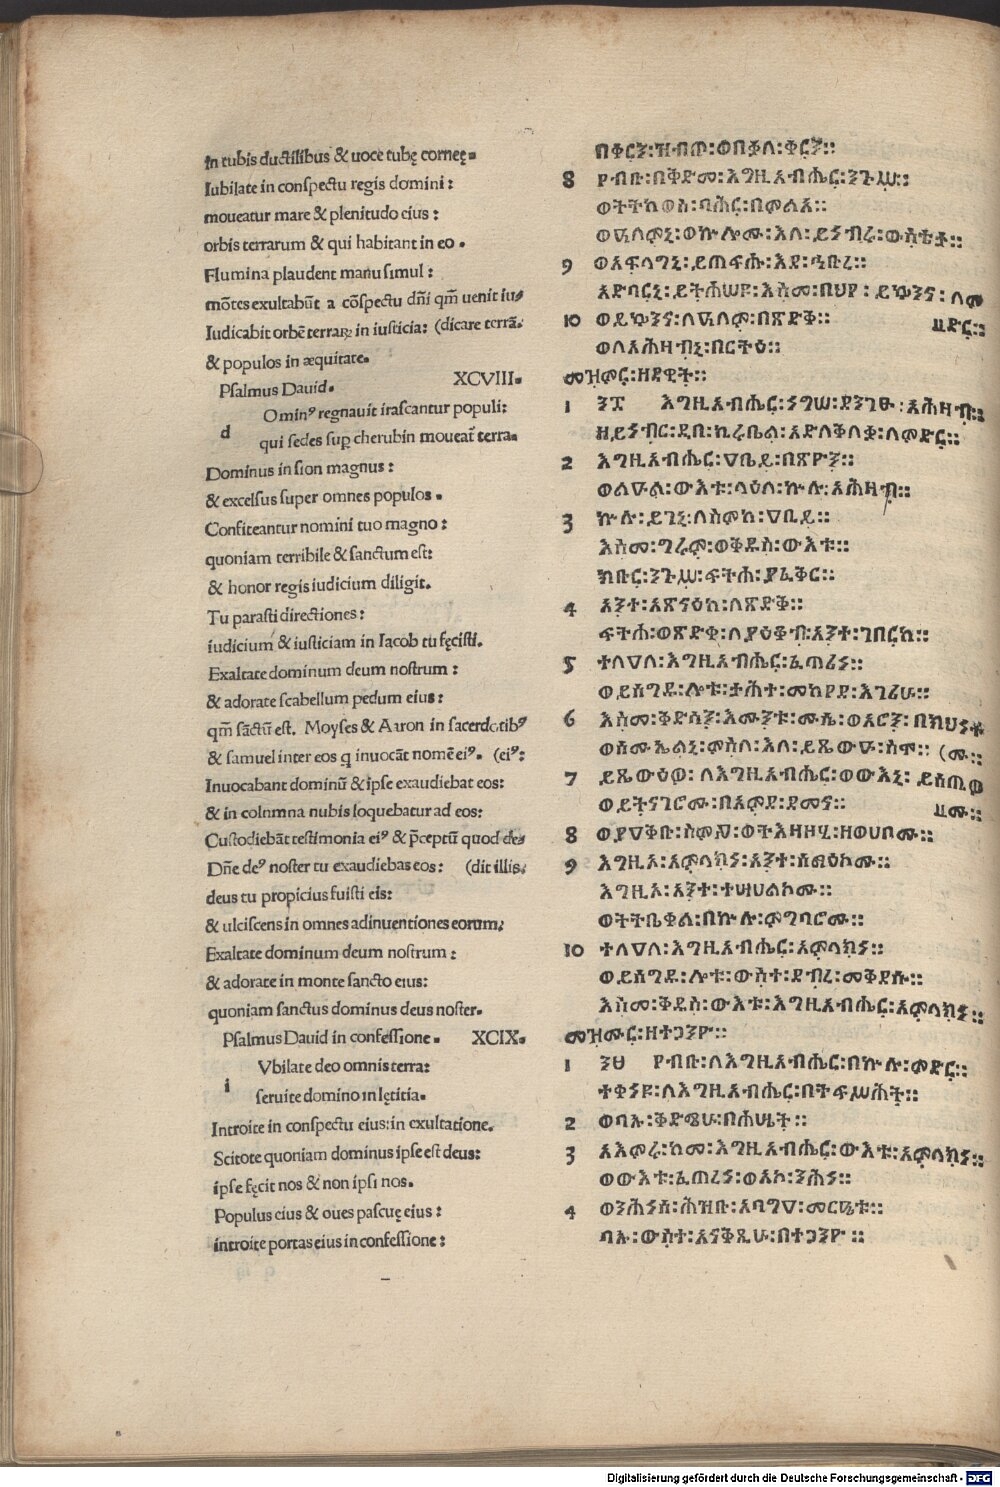 In tubis ductilibus & uoce tubę corneę.
Iubilate in conspectu regis domini:
moueatur mare & plenitudo eius:
orbis terrarum & qui habitant in eo.
Flumina plaudent manu simul:
mõtes exultabũt a cõspectu dñi qm̃ uenit iu⸗
Iudicabit orbē terrarꝝ in iusticia: (dicare terrã.
& populos in æquitate.
Psalmus Dauid. XCVIII.
d Ominꝰ regnauit irascantur populi:
qui sedes suꝑ cherubin moueat̃ terra.
Dominus in sion magnus:
& excelsus super omnes populos.
Confiteantur nomini tuo magno:
quoniam terribile & sanctum est:
& honor regis iudicium diligit.
Tu parasti directiones:
iudicium & iusticiam in Iacob tu fęcisti.
Exaltate dominum deum nostrum:
& adorate scabellum pedum eius:
qm̃ sãctũ est. Moyses & Aaron in sacerdotibꝰ
& samuel inter eos q̃ inuocãt nomē eiꝰ. (eiꝰ:
Inuocabant dominũ & ipse exaudiebat eos:
& in colnmna nubis loquebatur ad eos:
Custodiebãt testimonia eiꝰ & p̃ceptũ quod de⸗
Dñe deꝰ noster tu exaudiebas eos: (dit illis.
deus tu propicius fuisti eis:
& ulciscens in omnes adinuentiones eorum.
Exaltate dominum deum nostrum:
& adorate in monte sancto eius:
quoniam sanctus dominus deus noster.
Psalmus Dauid in confessione. XCIX.
i Vbilate deo omnis terra:
seruite domino in lętitia.
Introite in conspectu eius: in exultatione.
Scitote quoniam dominus ipse est deus:
ipse fęcit nos & non ipsi nos.
Populus eius & oues pascuę eius:
introite portas eius in confessione:
በቀርን፡ዝብጦ፡ወበቃለ፡ቀርን።
8 የብቡ፡በቅድመ፡እግዚአብሔር፡ንጉሥ።
ወትትከወስ፡ባሕር፡በምልአ።
ወዓለምኒ፡ወኵሎሙ፡እለ፡ይነብሩ፡ውስቴታ።
9 ወአፍላግኒ፡ይጠፍሑ፡እደ፡ኅቡረ።
አድባርኒ፡ይትሐሠዩ፡እስመ፡በህየ፡ይኴንና፡ለም
10 ወይኴንና፡ለዓለም፡በጽድቅ። ድር።
ወለአሕዛብኒ፡በርትዕ።
መዝሙር፡ዘዳዊት።
1 ፺፰ እግዚአብሔር፡ነግሠ፡ደንገፁ፡አሕዛብ።
ዘይነብር፡ዲበ፡ኪሩቤል፡አድለቅለቃ፡ለምድር።
2 እግዚአብሔር፡ዐቢይ፡በጽዮን።
ወልዑል፡ውእቱ፡ላዕለ፡ኵሉ፡አሕዛብ።
3 ኵሉ፡ይገኒ፡ለስምከ፡ዐቢይ።
እስመ፡ግሩም፡ወቅዱስ፡ውእቱ።
ክቡር፡ንጉሥ፡ፍትሐ፡ያፈቅር።
4 አንተ፡አጽናዕከ፡ለጽድቅ።
ፍትሐ፡ወጽድቀ፡ለያዕቆብ፡አንተ፡ገበርከ።
5 ተለዐለ፡እግዚአብሔር፡ፈጣሪነ።
ወይሰግዱ፡ሎቱ፡ታሕተ፡መከየደ፡እገሪሁ።
6 እስመ፡ቅዱሳን፡እሙንቱ፡ሙሴ፡ወአሮን፡በክህነቱ
ወሰሙኤልኒ፡ምስለ፡እለ፡ይጼውዑ፡ስሞ። (ሙ።
7 ይጼውዕዎ፡ለእግዚአብሔር፡ወውእኒ፡ይሰጠዎ
ወይትናገሮሙ፡በአምደ፡ደመና። ሙ።
8 ወያዐቅቡ፡ስምዐ፡ወትእዛዛሂ፡ዘወሀቦሙ።
9 እግዚኦ፡አምላክነ፡አንተ፡ሰማዕኮሙ።
እግዚኦ፡አንተ፡ተሣሀልኮሙ።
ወትትቤቀል፡በኵሉ፡ምግባሮሙ።
10 ተለዐለ፡እግዚአብሔር፡አምላክነ።
ወይሰግዱ፡ሎቱ፡ውስተ፡ደብረ፡መቅደሱ።
እስመ፡ቅዱስ፡ውእቱ፡እግዚአብሔር፡አምላክነ።
መዝሙር፡ዘተጋንዮ።
1 ፺፱ የብቡ፡ለእግዚአብሔር፡በኵሉ፡ምድር።
ተቀነዩ፡ለእግዚአብሔር፡በትፍሥሕት።
2 ወባኡ፡ቅድሜሁ፡በሐሤት።
3 አእምሩ፡ከመ፡እግዚአብሔር፡ውእቱ፡አምላክነ።
ውእቱ፡ፈጠረነ፡ወአኮ፡ንሕነ።
4 ወንሕነሰ፡ሕዝቡ፡አባግዐ፡መርዔቱ።
ባኡ፡ውስተ፡አናቅጺሁ፡በተጋንዮ።
Digitalisierung gefördert durch die Deutsche Forschungsgemeinschaft - DFG